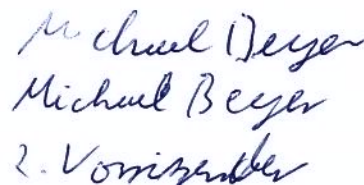 Michael Beyer
Michael Beyer
2. Vorsitzender